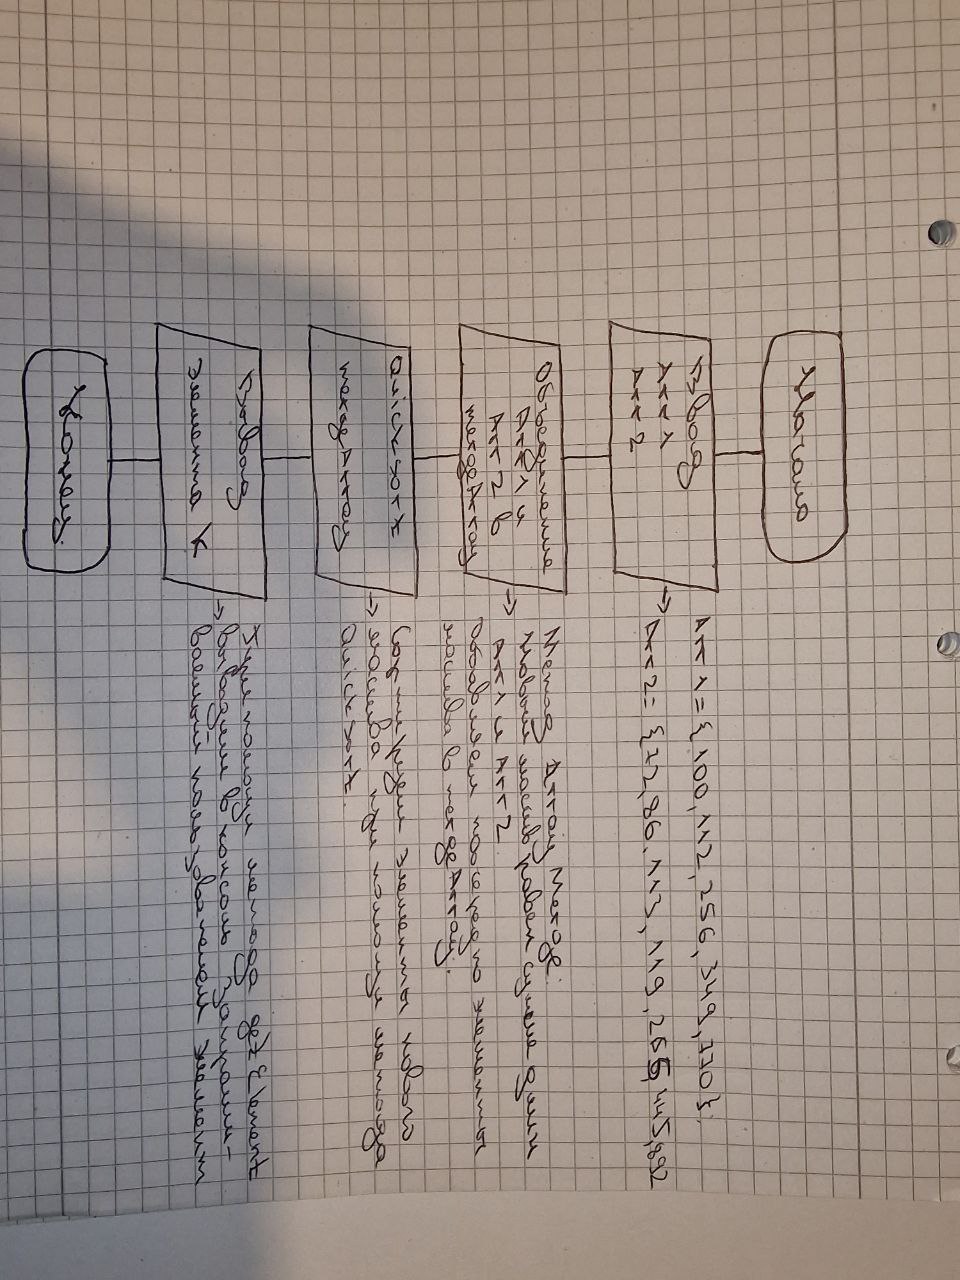 Начало
Ввод
Arr 1
Arr 2
Arr 1 = {100, 112, 256, 349, 770};
Arr 2 = {72, 86, 113, 119, 265, 445, 892
Объединение
Arr 1 и
Arr 2 в
mergeArray
Метод Array Merge.
Новый массив равен сумме длин
Arr 1 и Arr 2.
Добавляем поочередно элементы
массива в mergeArray.
Quicksort
mergeArray
Сортируем элементы нового
массива при помощи метода
Quicksort.
Вывод
элемента k
При помощи метода getElement
выводим в консоль запраши-
ваемый пользователем элемент
Конец.